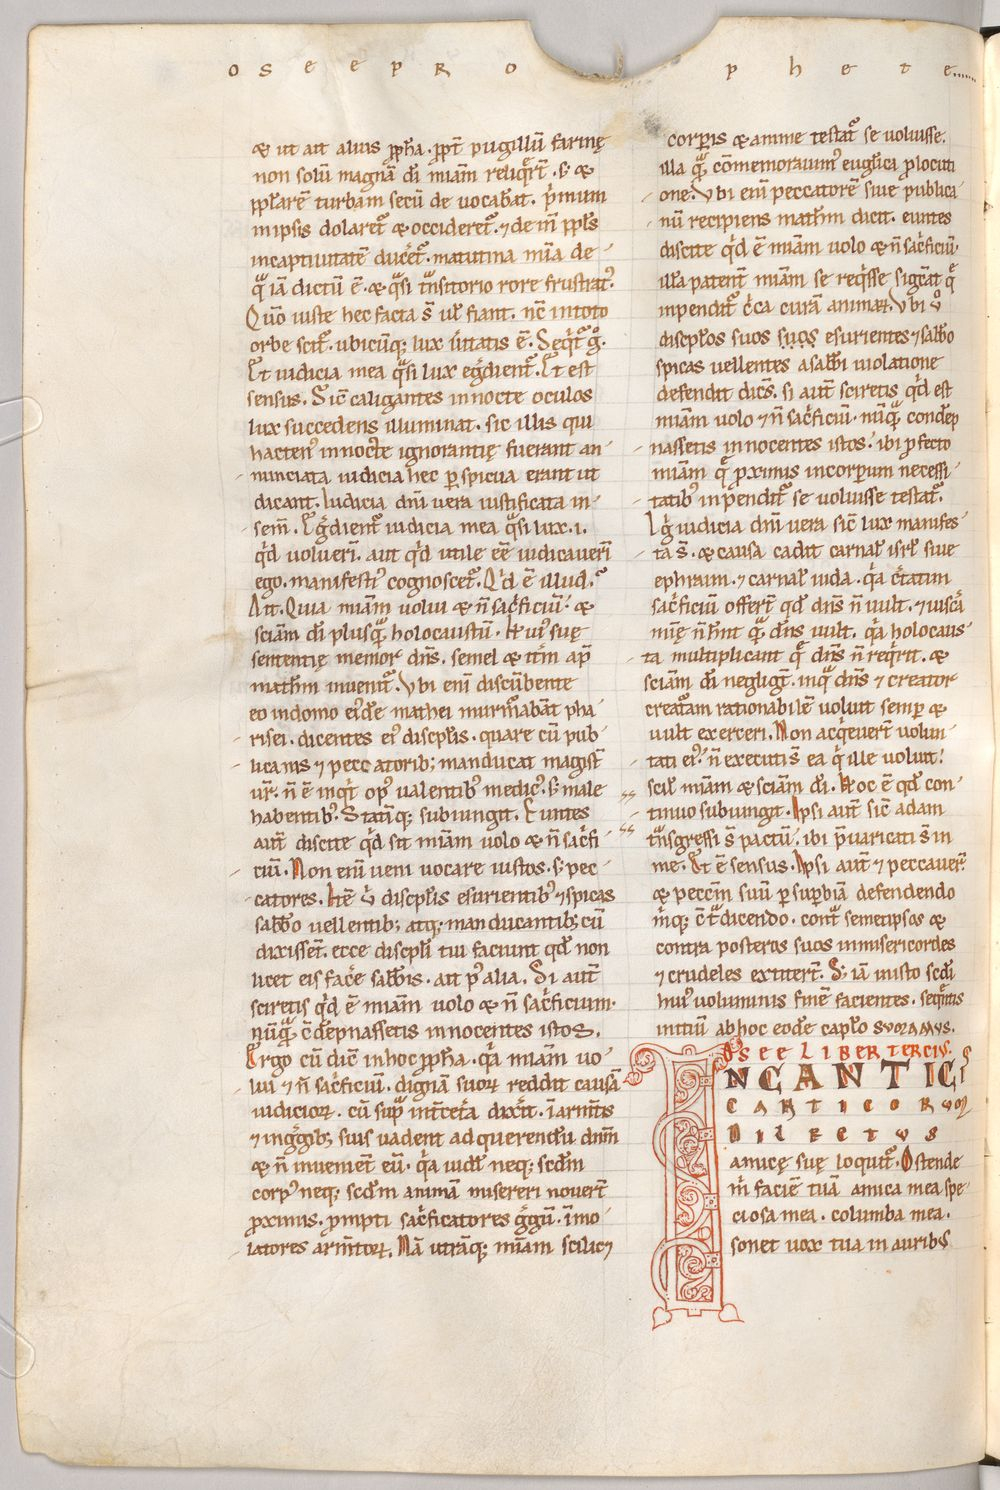 OSEE PROPHETE
& ut ait alius ppha. ppt pugillũ farinę
non solũ magnã di miam reliqrt. s; &
pplarē turbam secũ de uocabat. p̃mum
inipsis dolaret & occideret. ⁊ de in ppls
incaptiuitatē ducet̃. matutina mia de-
q̃ iã dictũ ē. & q̃si tñsitorio rore frustrat᷒.
Quõ iuste hec facta s̃ ul fiant. nc̃ intoto
orbe scit̃. ubicũq; lux ueritatis ē. Seqt̃ g̊.
Et iudicia mea q̃si lux egdient̃. Et est
sensus. Sic caligantes innocte oculos
lux succedens illuminat. sic illis qui
hacten᷒ innocte ignorantię fuerant an-
nunciata iudicia hec pspicua erunt ut
dicant. Iudicia dni uera iustificata in-
sem̃. Egdient̃ iudicia mea q̃si lux .i.
qd uoluerĩ. aut qd utile eē iudicauerĩ
ego. manifesti᷒ cognoscet̃. Qd ē illud.
Ait. Quia miam uolui & ñ sacficiũ. &
sciam di plusq̃ holocaustũ. Hui᷒ suę
sententię memor dns. semel & itm ap
mathm inuenit̃. Vbi eni discũbente
eo indomo ei᷒dē mathei murmabãt pha-
risei. dicentes ei᷒ discplis. quare cũ pub-
licanis ⁊ peccatorib; manducat magist
ur̃. ñ ē inqt op᷒ ualentib᷒ medic᷒. s; male
habentib᷒. Statĩq; subiungit. Euntes
aut̃ discite qd sit miam uolo & ñ sacfi-
ciũ. Non eni ueni uocare iustos. s; pec-
catores. Itē ũ discplis esurientib᷒ ⁊ spicas
sabbo uellentib; atq; manducantib; cũ
dixissent̃. ecce discpli tui faciunt qd non
licet eis face sabbis. ait p᷒ alia. Si aut̃
sciretis qd ē miam uolo & ñ sacficium.
nũq̃ cdẽpnassetis innocentes istos.
Ergo cũ dic inhoc ppha. qa miam uo-
lui ⁊ ñ sacficiũ. dignã suoꝝ reddit causã
iudicioꝝ. cũ sup int̃ ceta dixit. ĩ arm̃tis
⁊ in ggib; suis uadent ad querendũ dnm
& ñ inuenient eũ. qa uidl neq; scdm
corp᷒ neq; scdm animã misereri nouert̃
pximis. pmpti sacficatores ggũ. ĩmo-
latores arm̃toꝝ. Nã utrãq; miam scilic⁊
corpis & anime testat̃ se uoluisse.
illa q̃ cõmemorauim᷒ euglica plocuti
one. Vbi eni peccatorē siue publica-
nũ recipiens mathm dicit. euntes
discite qd ē miam uolo & ñ sacficiũ.
illa patent̃ miam se reqsse sigcat q̃
inpendit̃ cca curã animaꝝ. Vbi ũ
discplos suos suos esurientes ⁊ sabbo
spicas uellentes a sabbi uiolatione
defendit dics. si aut̃ sciretis qd est
miam uolo ⁊ ñ sacficiũ. nũq̃ condep
nassetis innocentes istos. ibi pfecto
miam q̃ pximis incorporum necessi-
tatib᷒ inpendit̃ se uoluisse testat̃.
Ig̃ iudicia dni uera sic lux manifes-
ta s̃. & causa cadit carnal isrl siue
ephraim. ⁊ carnal iuda. qa ctatim
sacficiũ offert̃ qd dns ñ uult. ⁊ uiscã
mię ñ hnt q̃ dns uult. qa holocaus-
ta multiplicant q̃ dns ñ reqrit. &
sciam di negligt̃. inq̃ dns ⁊ creator
creatam rationabilē uoluit semp &
uult exerceri. Non acqeuert̃ uolun-
tati ei᷒. ñ executi s̃ ea q̃ ille uoluit.
scil miam & sciam di. Hoc ē qd con-
tinuo subiungit. Ipsi aut̃ sic adam
tñsgressi s̃ pactũ. ibi p̃uaricati s̃ in
me. Et ē sensus. Ipsi aut̃ ⁊ peccauer̃.
& peccm suũ p supbiã defendendo
mq; ctdicendo. cont̃ semetipsos &
contra posteros suos inmisericordes
⁊ crudeles extitert̃. S; iã nusto scdi
hui᷒ uoluminis finē facientes. seqntis
initiũ ab hoc eodē caplo SVOMAMVS.
OSEE LIBER TERCIVS.
IN CANTICIS
CANTICORVM
DILECTVS
amicę suę loquit̃. Ostende
m faciē tuã amica mea spe-
ciosa mea. columba mea.
sonet uox tua in auribus